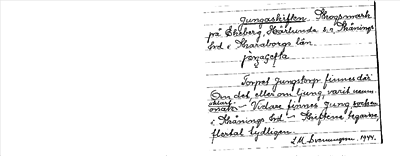 Jungaskiften. Skogsmark
på Ekeberg, Härlunda s:n, Skånings
hd. Skaraborgs län.
Torpet Jungstorp finnes där
Om det eller om ljung varit
Vidare finnes jung
i Skånings hd – Skiftena
flertal tydligen.
1944.